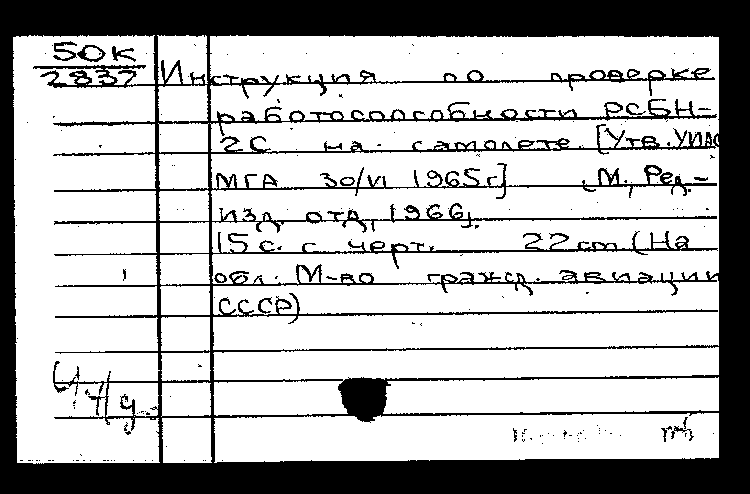 50К
2837
Инструкция по проверке
работоспособности РСБН-
2С на самолете. [Утв. УИАС
МГА 30/VI 1965г.] [М., Ред.-
изд. отд., 1966].
15 с. с черт. 22 cm (На
обл.: М-во гражд. авиации
СССР)